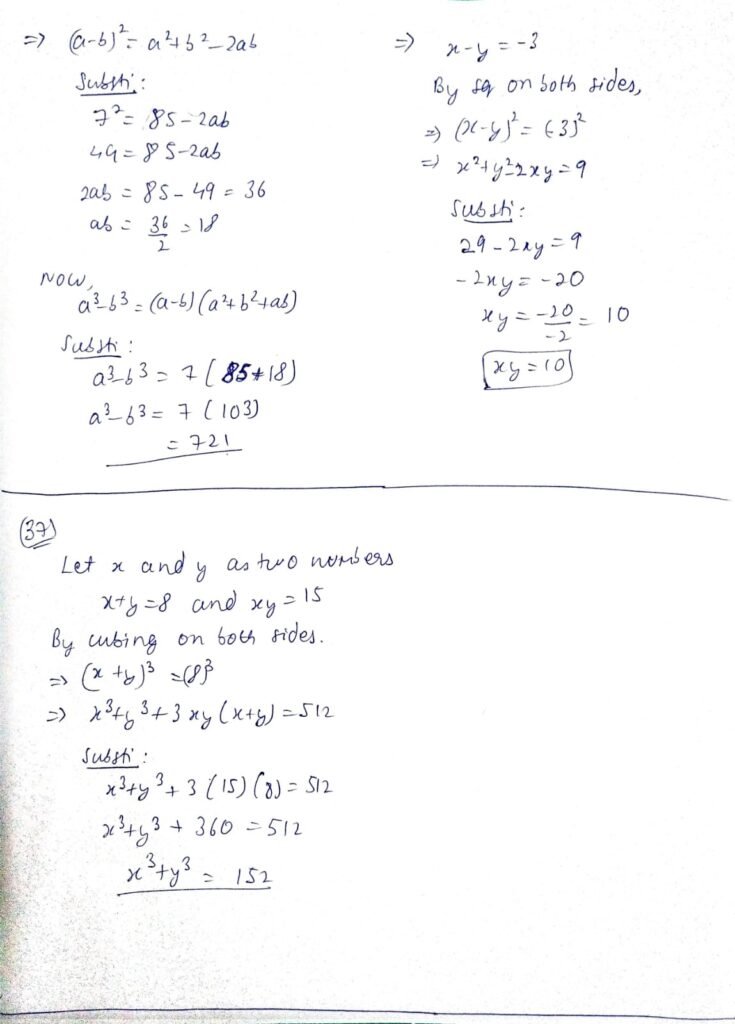 => (a-b)² = a²+b²-2ab
Substi:
7² = 85-2ab
49 = 85-2ab
2ab = 85-49 = 36
ab = 36/2 = 18
NOW,
a³-b³ = (a-b)(a²+b²+ab)
Substi:
a³-b³ = 7(85+18)
a³-b³ = 7(103)
= 721
=> x-y = -3
By sq on both sides,
=> (x-y)² = (-3)²
=> x²+y²-2xy = 9
Substi:
29-2xy = 9
-2xy = -20
xy = -20/-2 = 10
xy = 10
(37)
Let x and y as two numbers
x+y = 8 and xy = 15
By cubing on both sides.
=> (x+y)³ = (8)³
=> x³+y³+3xy(x+y) = 512
Substi:
x³+y³+3(15)(8) = 512
x³+y³+360 = 512
x³+y³ = 152